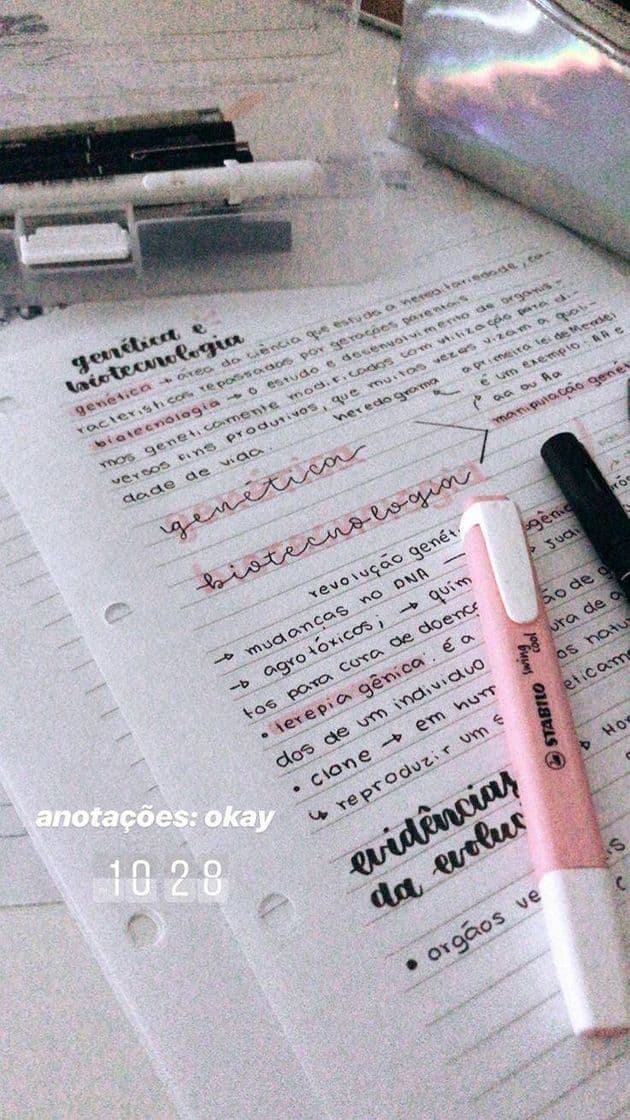 genética e
biotecnologia
genética → área da ciência que estuda a hereditariedade, ca-
racterísticas repassados por gerações parentais
biotecnologia → o estudo e desenvolvimento de organis-
mos geneticamente modificados com utilização para di-
versos fins produtivos, que muitas vezes vizam a quali-
dade de vida.
heredograma
a primeira lei de Mendel
é um exemplo. AA e
aa ou Aa
manipulação genét
genética
biotecnologia
revolução genét
→ mudanças no DNA
→ agrotóxicos; → quím
tos para cura de doenç
• terepia gênica: é a
dos de um individuo
• clone → em hum
↳ reproduzir um s
evidências
da evoluç
• orgãos ve
STABILO
swing
cool
anotações: okay
10 28